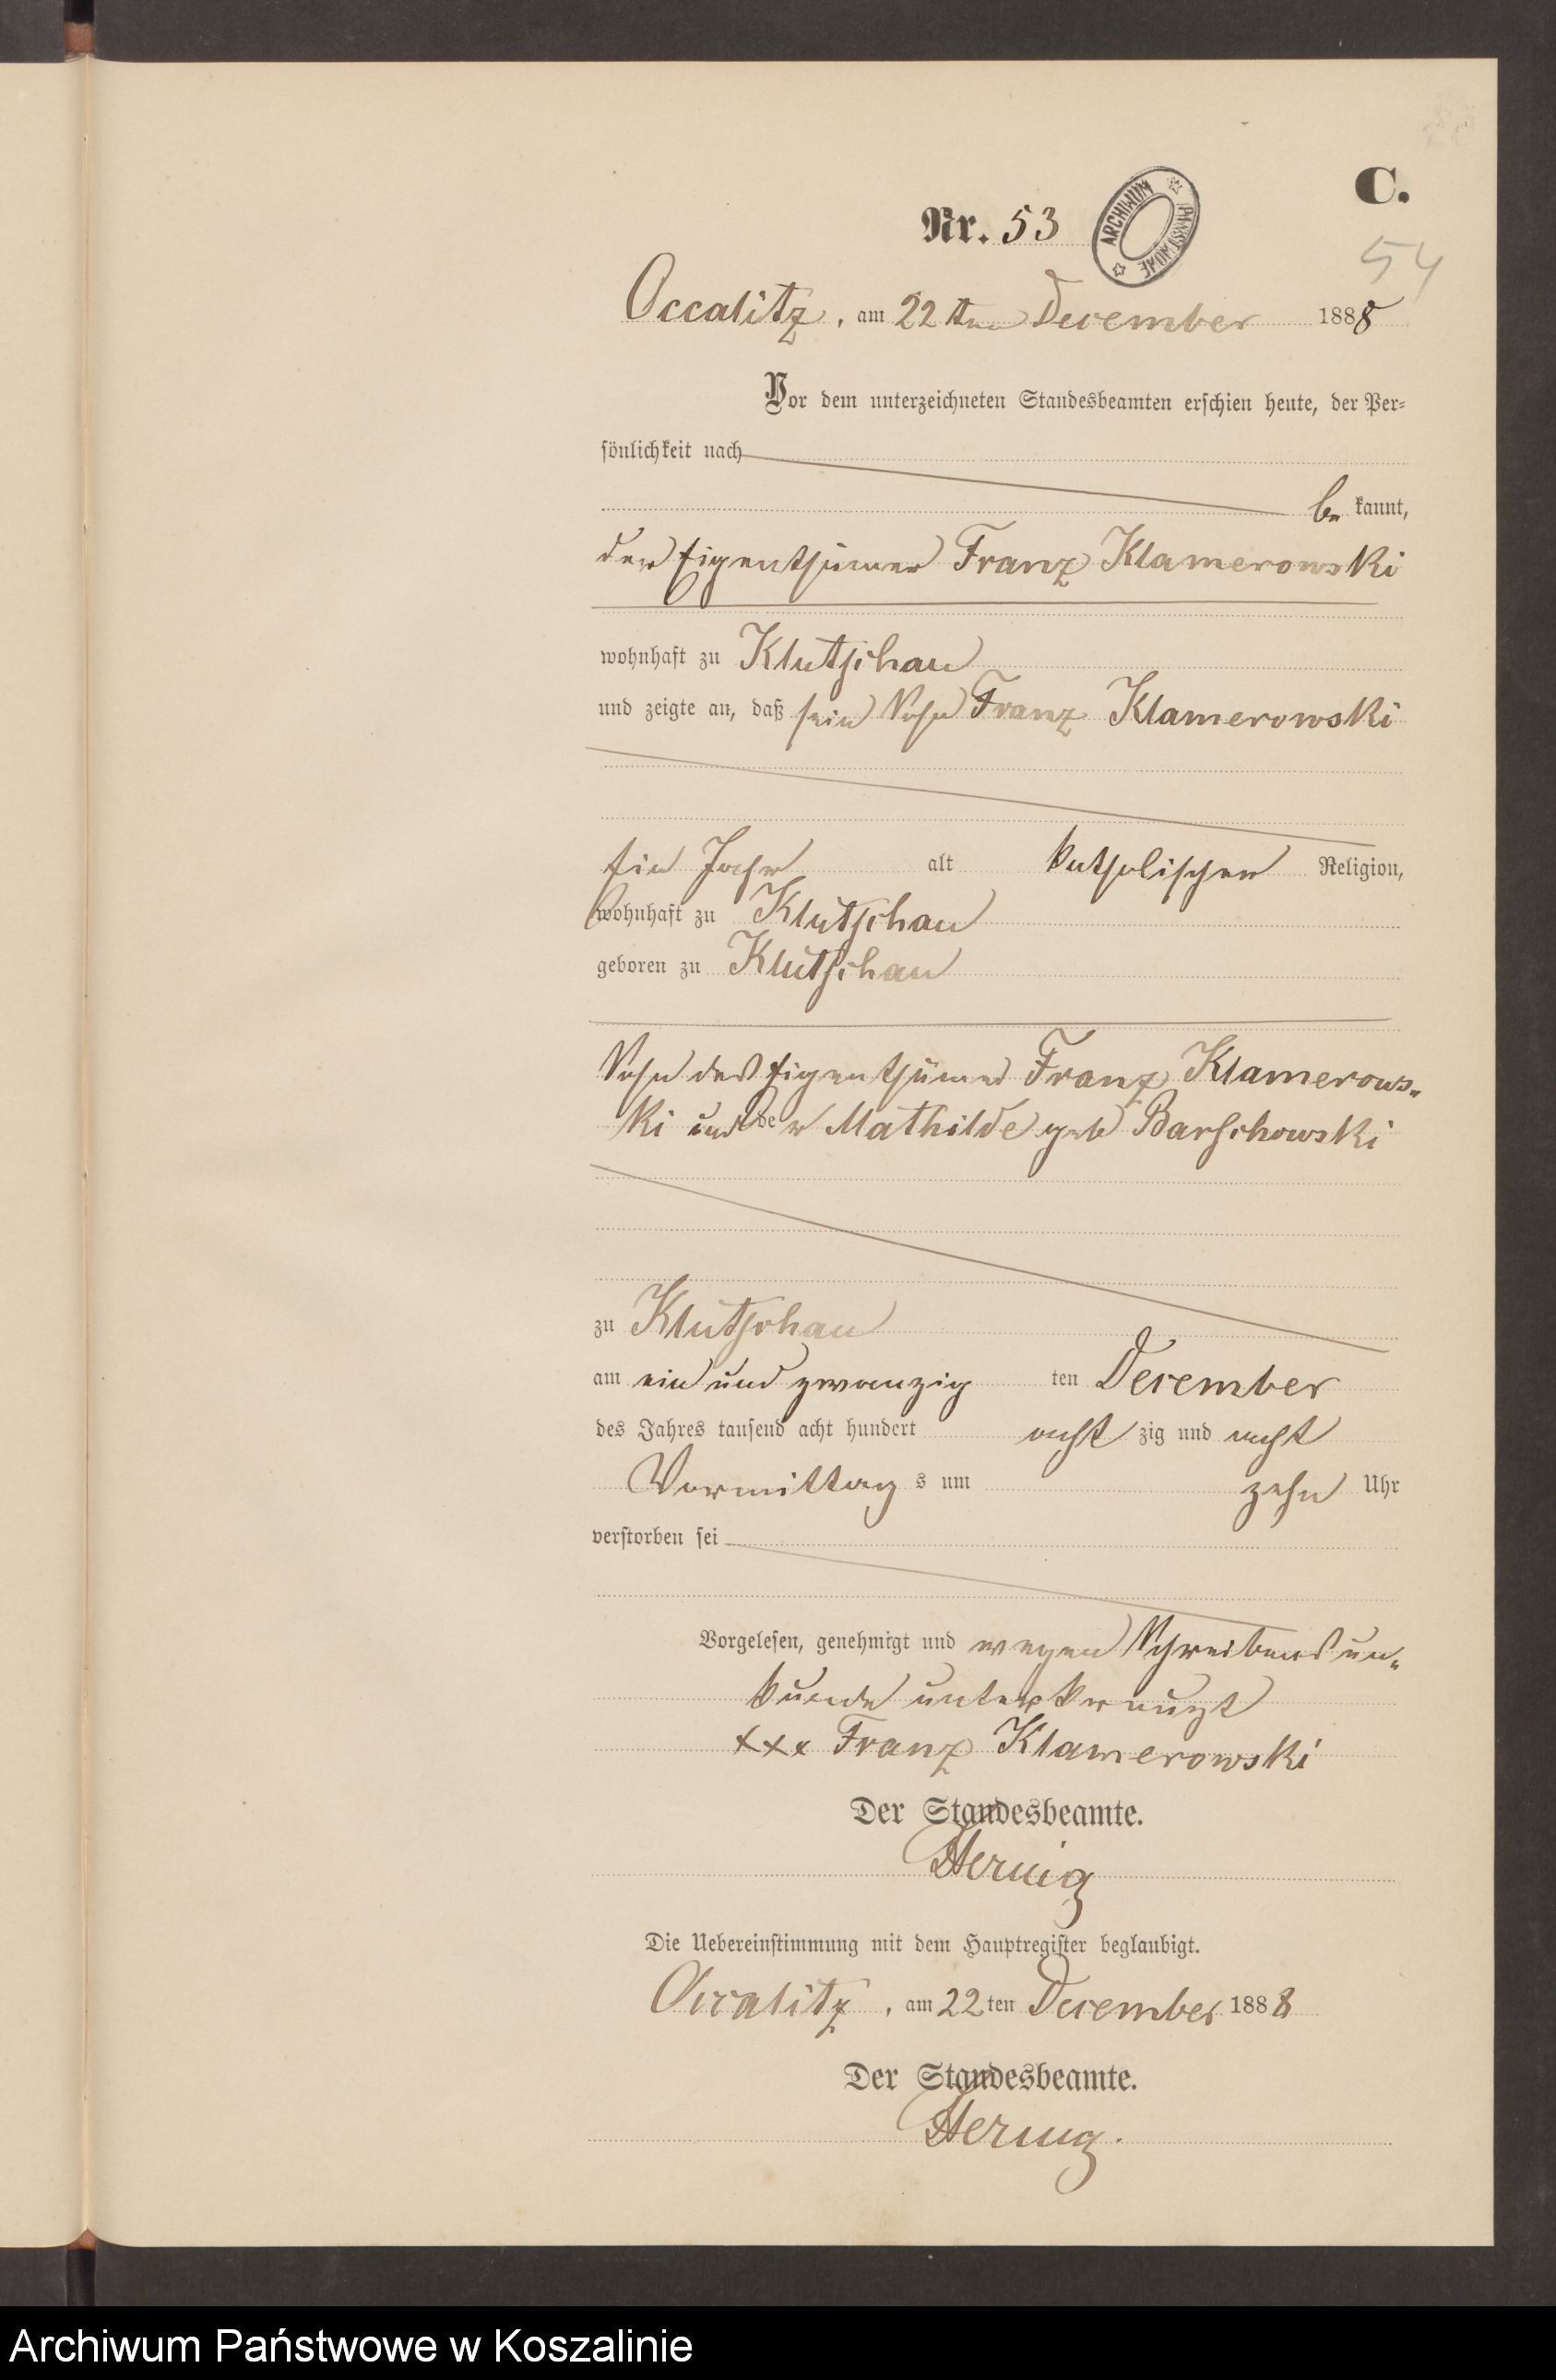 C.
Nr. 53
ARCHIWUM PAŃSTWOWE
54
Occalitz, am 22ten December 1888
Vor dem unterzeichneten Standesbeamten erschien heute, der Per-
sönlichkeit nach
be kannt,
der Eigenthümer Franz Klamerowski
wohnhaft zu Klutschau
und zeigte an, daß sein Sohn Franz Klamerowski
Ein Jahr alt katholischer Religion,
wohnhaft zu Klutschau
geboren zu Klutschau
Sohn des Eigenthümers Franz Klamerows-
ki und der Mathilde geb Barschowski
zu Klutschau
am ein und zwanzig ten December
des Jahres tausend acht hundert acht zig und acht
Vormittag s um zehn Uhr
verstorben sei
Vorgelesen, genehmigt und wegen Schreibensun-
kunde unterkreuzt
xxx Franz Klamerowski
Der Standesbeamte.
Die Uebereinstimmung mit dem Hauptregister beglaubigt.
Occalitz, am 22 ten December 1888
Der Standesbeamte.
Archiwum Państwowe w Koszalinie